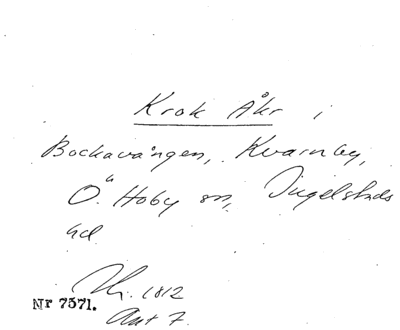 Krok Åkr i
Bockavången, Kvarnby,
Ö. Hoby sn, Ingelstads
hd
1812
Nr 7371.
Ant 7.